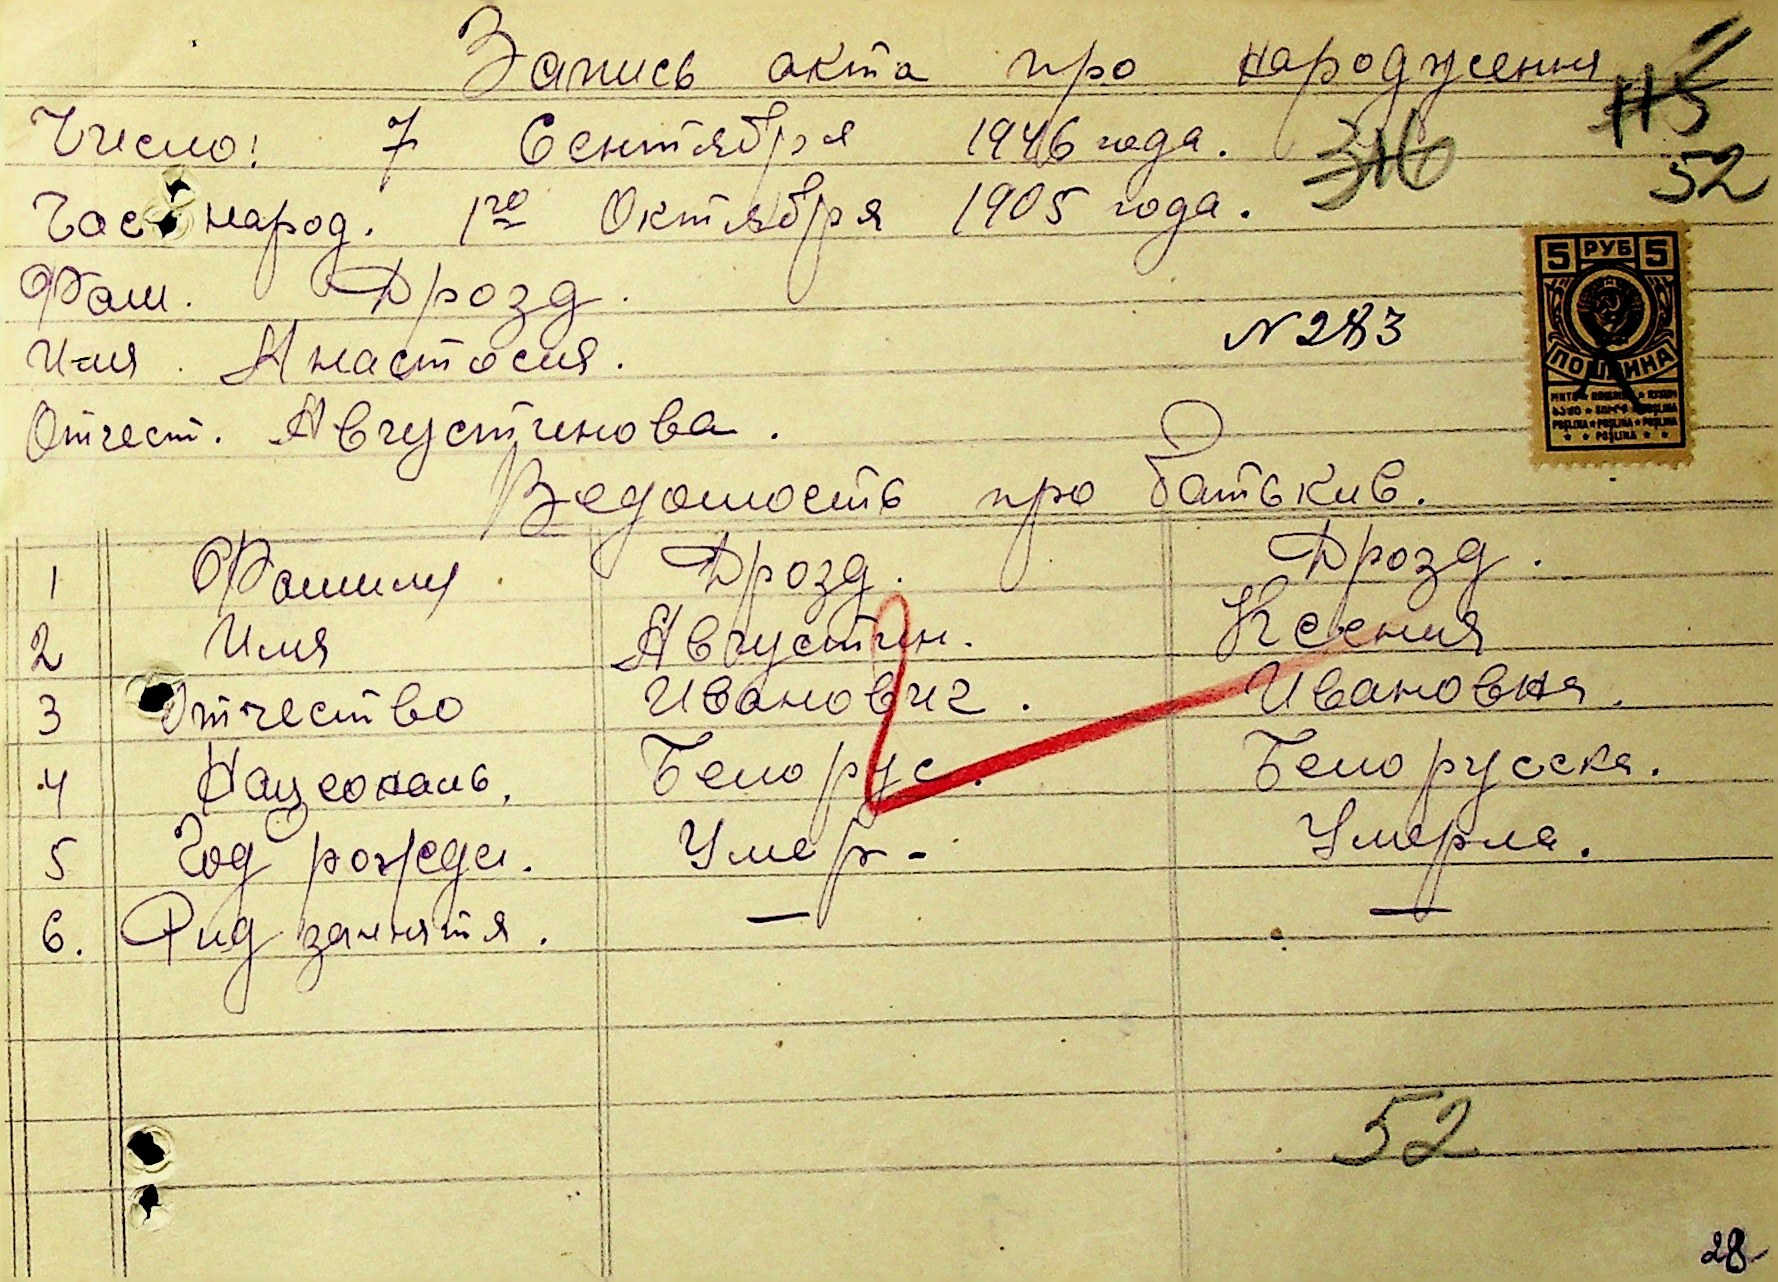 Запись акта про народження
115
Число: 7 Сентября 1946 года. 316
52
Час народ. 1го Октября 1905 года.
Фам. Дрозд.
5 РУБ 5
ПОШЛИНА
Имя Анастасия. N 283
Отчест. Августинова.
Ведомость про батькив.
1 Фамилия Дрозд. Дрозд.
2 Имя Августин. Ксения
3 Отчество Иванович. Ивановна.
4 Нацеональ. Белорус. Белорусска.
5 Год рожден. Умер - Умерла.
6. Рид заннятя. — —
52
28